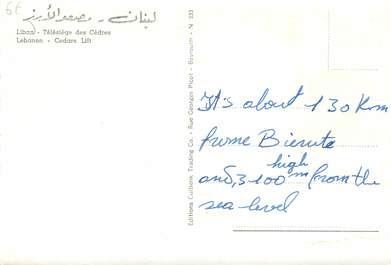 6€
لبنان - مصعد الأرز
Liban - Télésiège des Cèdres
Lebanon - Cedars Lift
Editions Culturik Trading Co. - Rue Georges Picot - Beyrouth - N 393
It's about 130 Km
frome Bierute
high
and, 3100 m from the
sea level